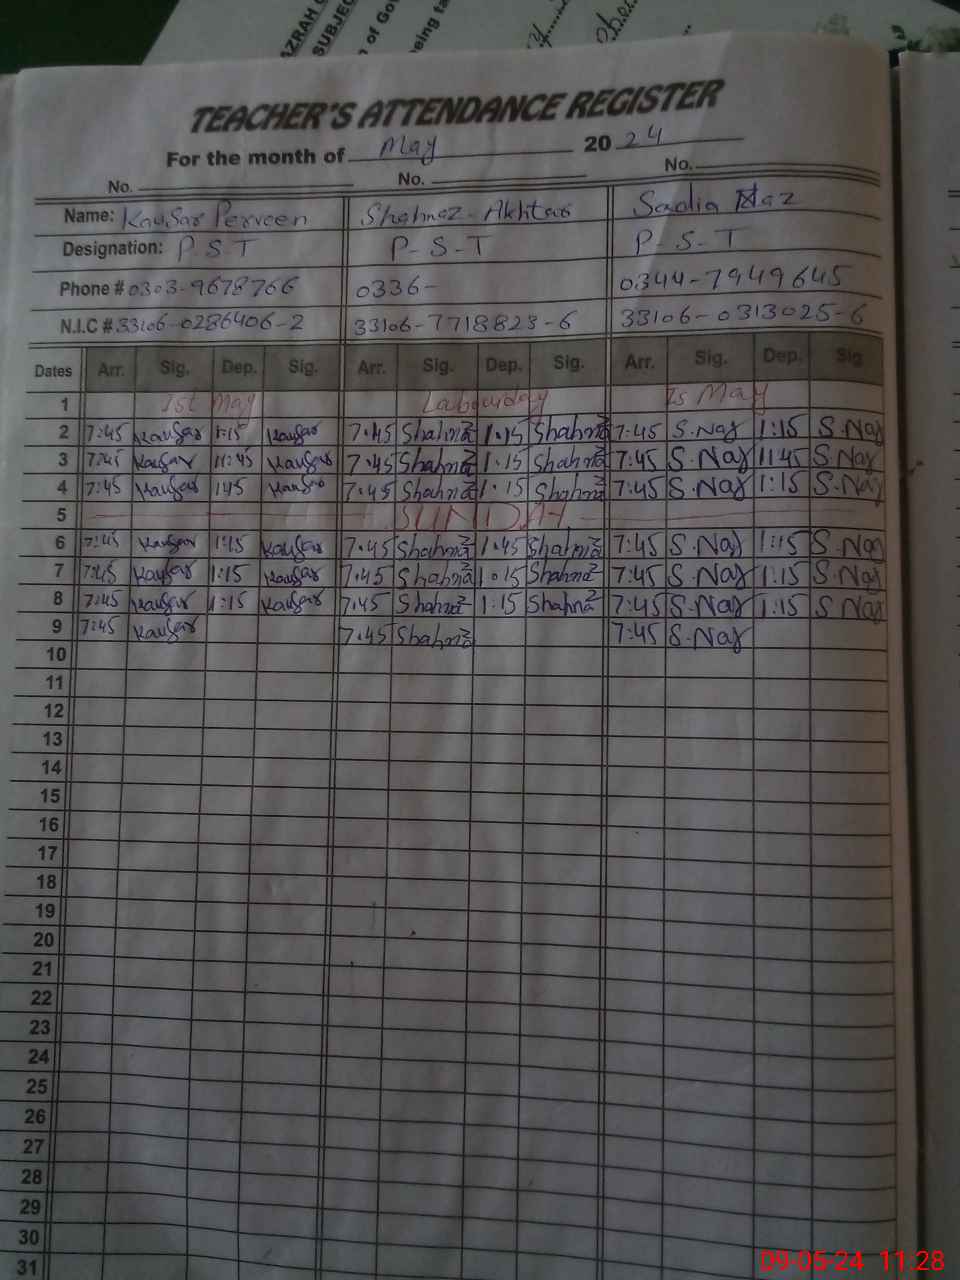 AZRAH
SUBJEC
n of Gov
eing ta
TEACHER'S ATTENDANCE REGISTER
For the month of May 2024
No. No. No.
Name: Kausar Perveen Shahnaz-Akhtar Sadia Naz
Designation: P.S.T P-S-T P-S-T
Phone # 0303-9678766 0336- 0344-7949645
N.I.C # 33106-0286406-2 33106-7718823-6 33106-0313025-6
Dates Arr. Sig. Dep. Sig. Arr. Sig. Dep. Sig. Arr. Sig. Dep. Sig
1 1st May Labourday Is May
2 7:45 Kausar 1:15 Kausar 7.45 Shahnaz 1.15 Shahnaz 7:45 S.Naz 1:15 S.Naz
3 7:45 Kausar 11:45 Kausar 7.45 Shahnaz 1.15 Shahnaz 7:45 S.Naz 11:45 S.Naz
4 7:45 Kausar 1:45 Kausar 7.45 Shahnaz 1.15 Shahnaz 7:45 S.Naz 1:15 S.Naz
5 SUNDAY
6 7:45 Kausar 1:15 Kausar 7.45 Shahnaz 1.45 Shahnaz 7:45 S.Naz 1:15 S.Naz
7 7:45 Kausar 1:15 Kausar 7.45 Shahnaz 1.15 Shahnaz 7:45 S.Naz 1:15 S.Naz
8 7:45 Kausar 1:15 Kausar 7.45 Shahnaz 1:15 Shahnaz 7:45 S.Naz 1:15 S.Naz
9 7:45 Kausar 7.45 Shahnaz 7:45 S.Naz
10
11
12
13
14
15
16
17
18
19
20
21
22
23
24
25
26
27
28
29
30
31
09-05-24 11:28